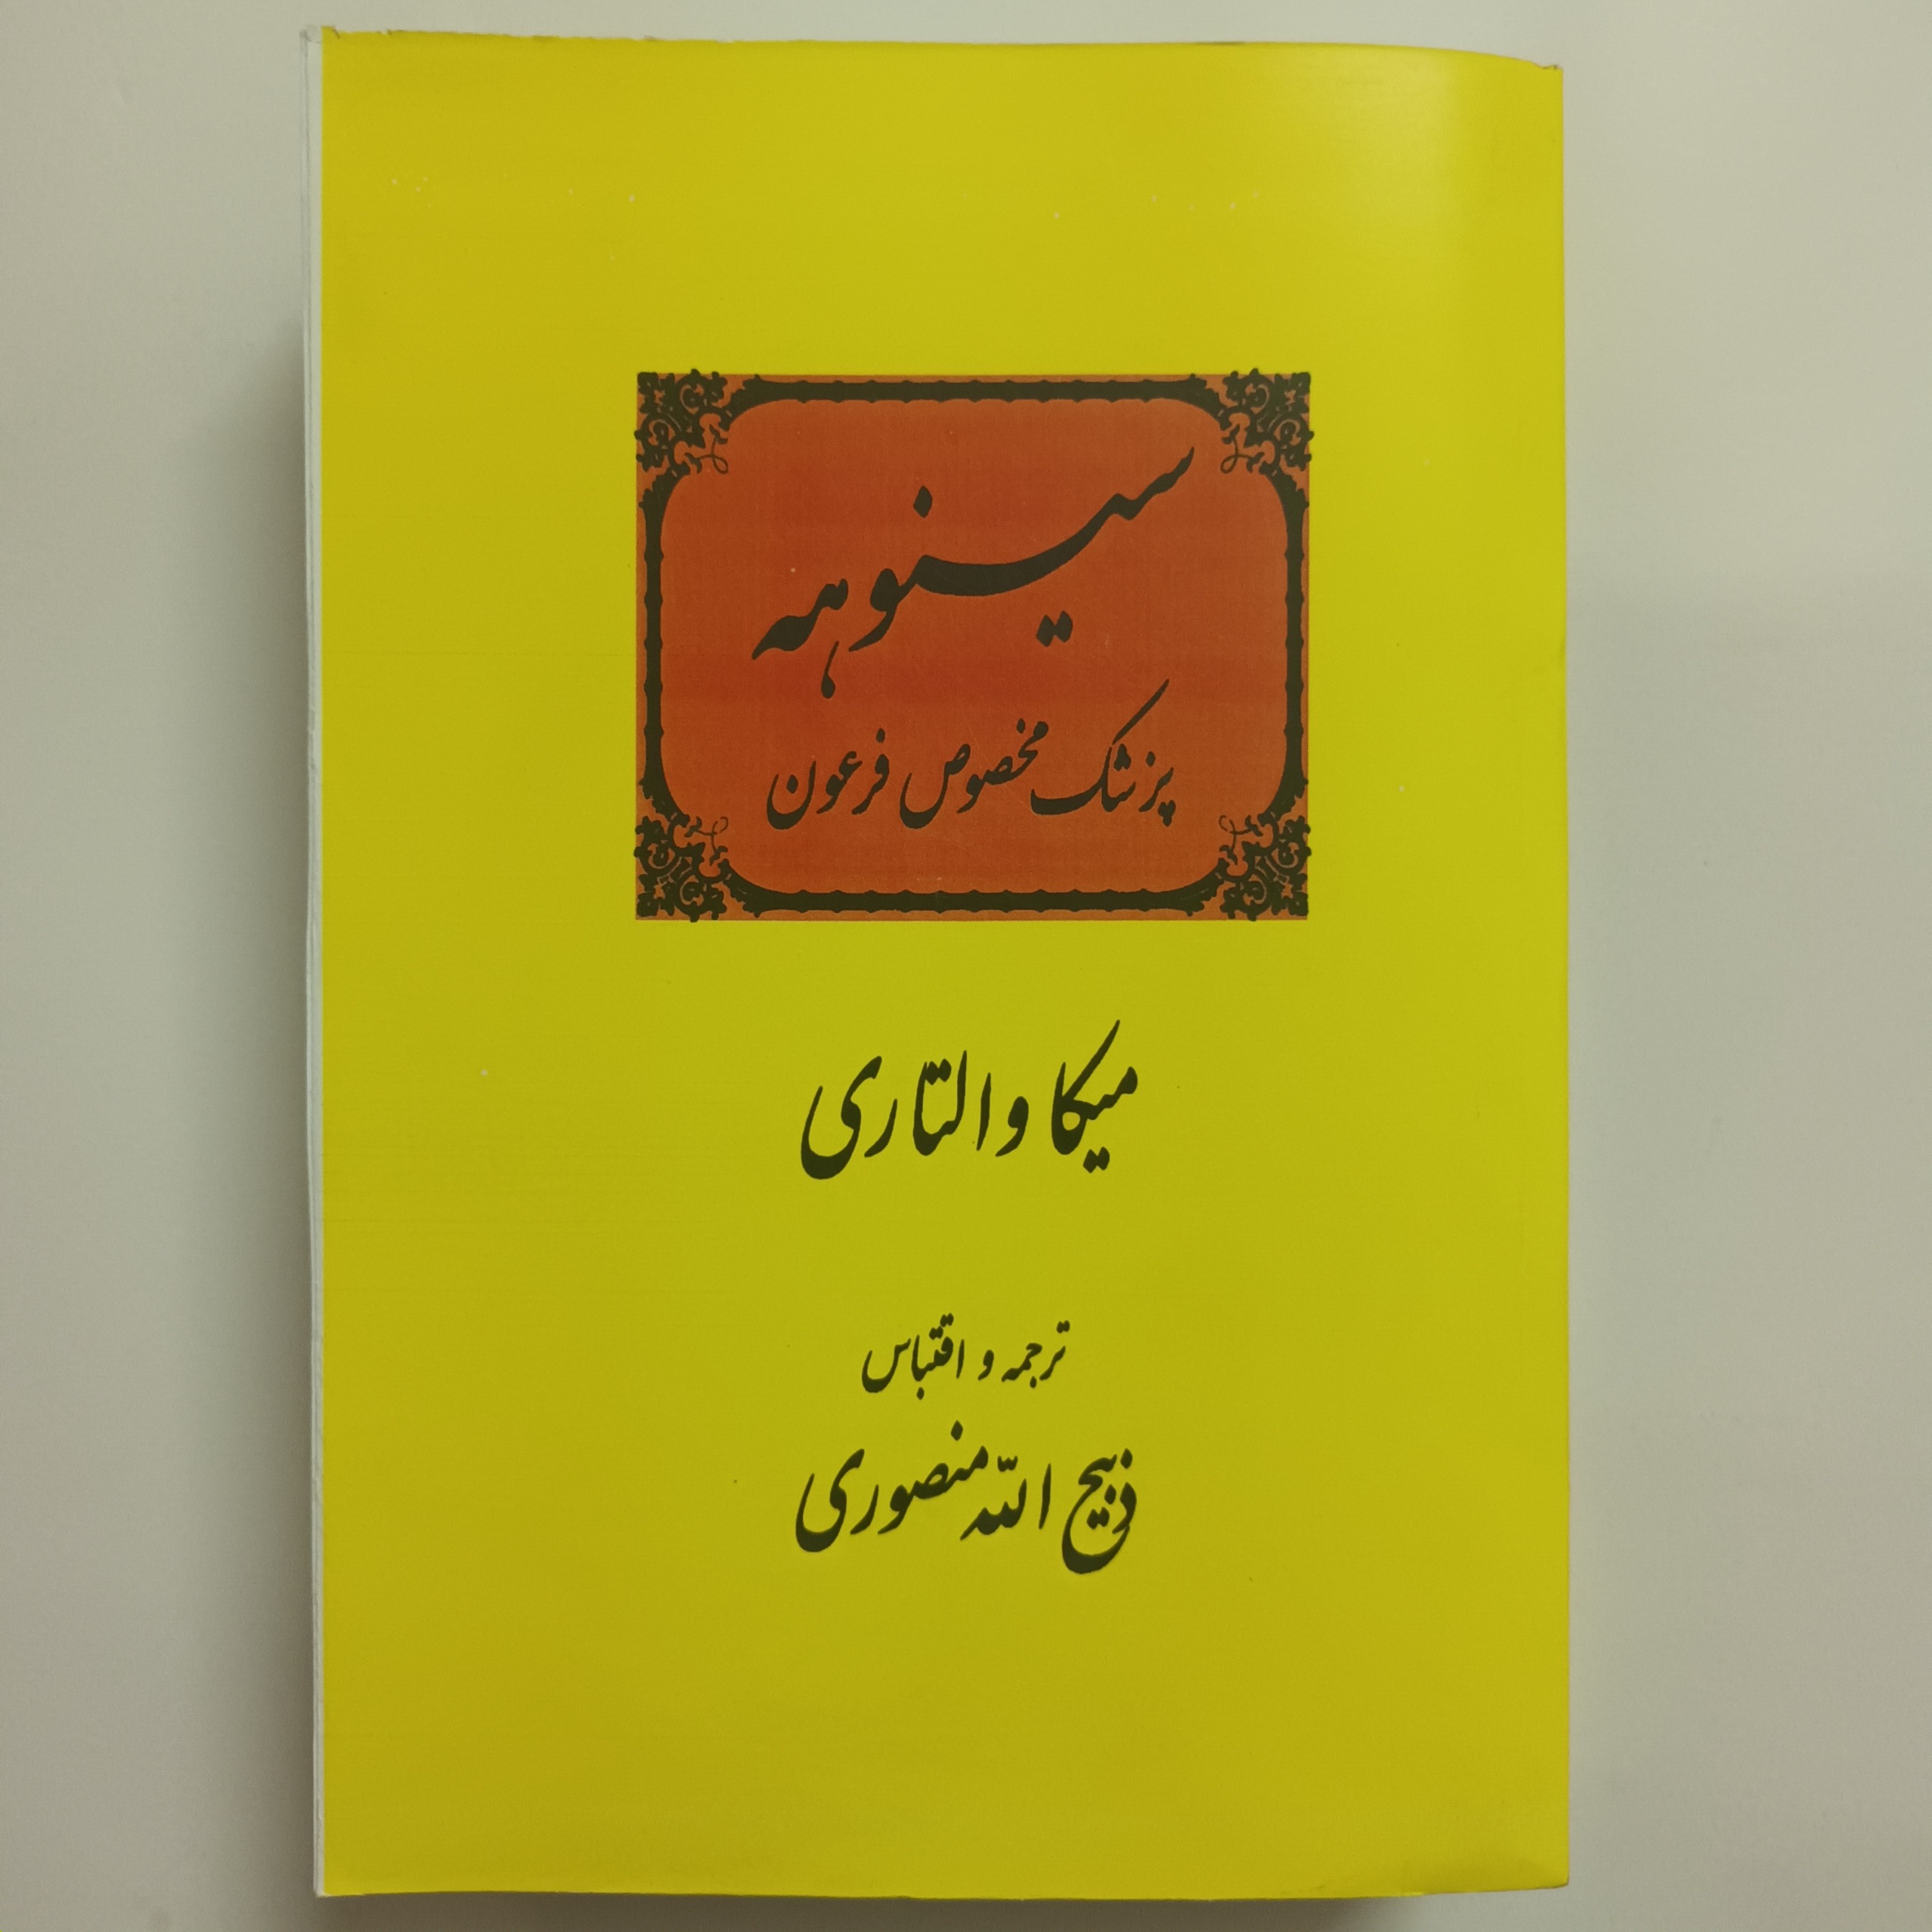 سینوهه
پزشک مخصوص فرعون
میکا والتاری
ترجمه و اقتباس
ذبیح الله منصوری